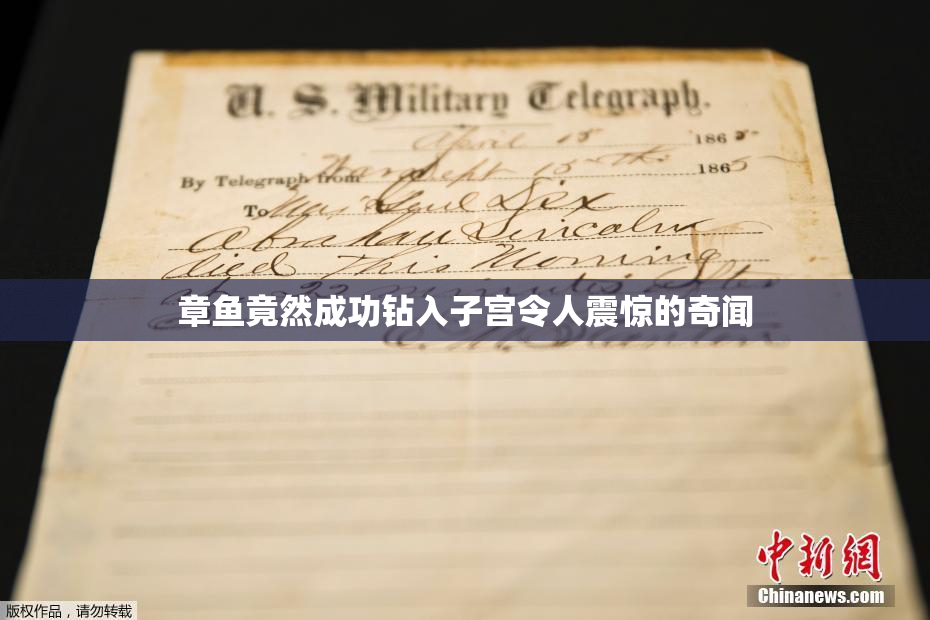 U. S. Military Telegraph.
April 15 1865
By Telegraph from War Dept 15th 1865
To Maj Genl Dix
Abraham Lincoln
died This Morning
at 22 minutes after
章鱼竟然成功钻入子宫令人震惊的奇闻
E. M. Stanton
中新網
Chinanews.com
版权作品，请勿转载